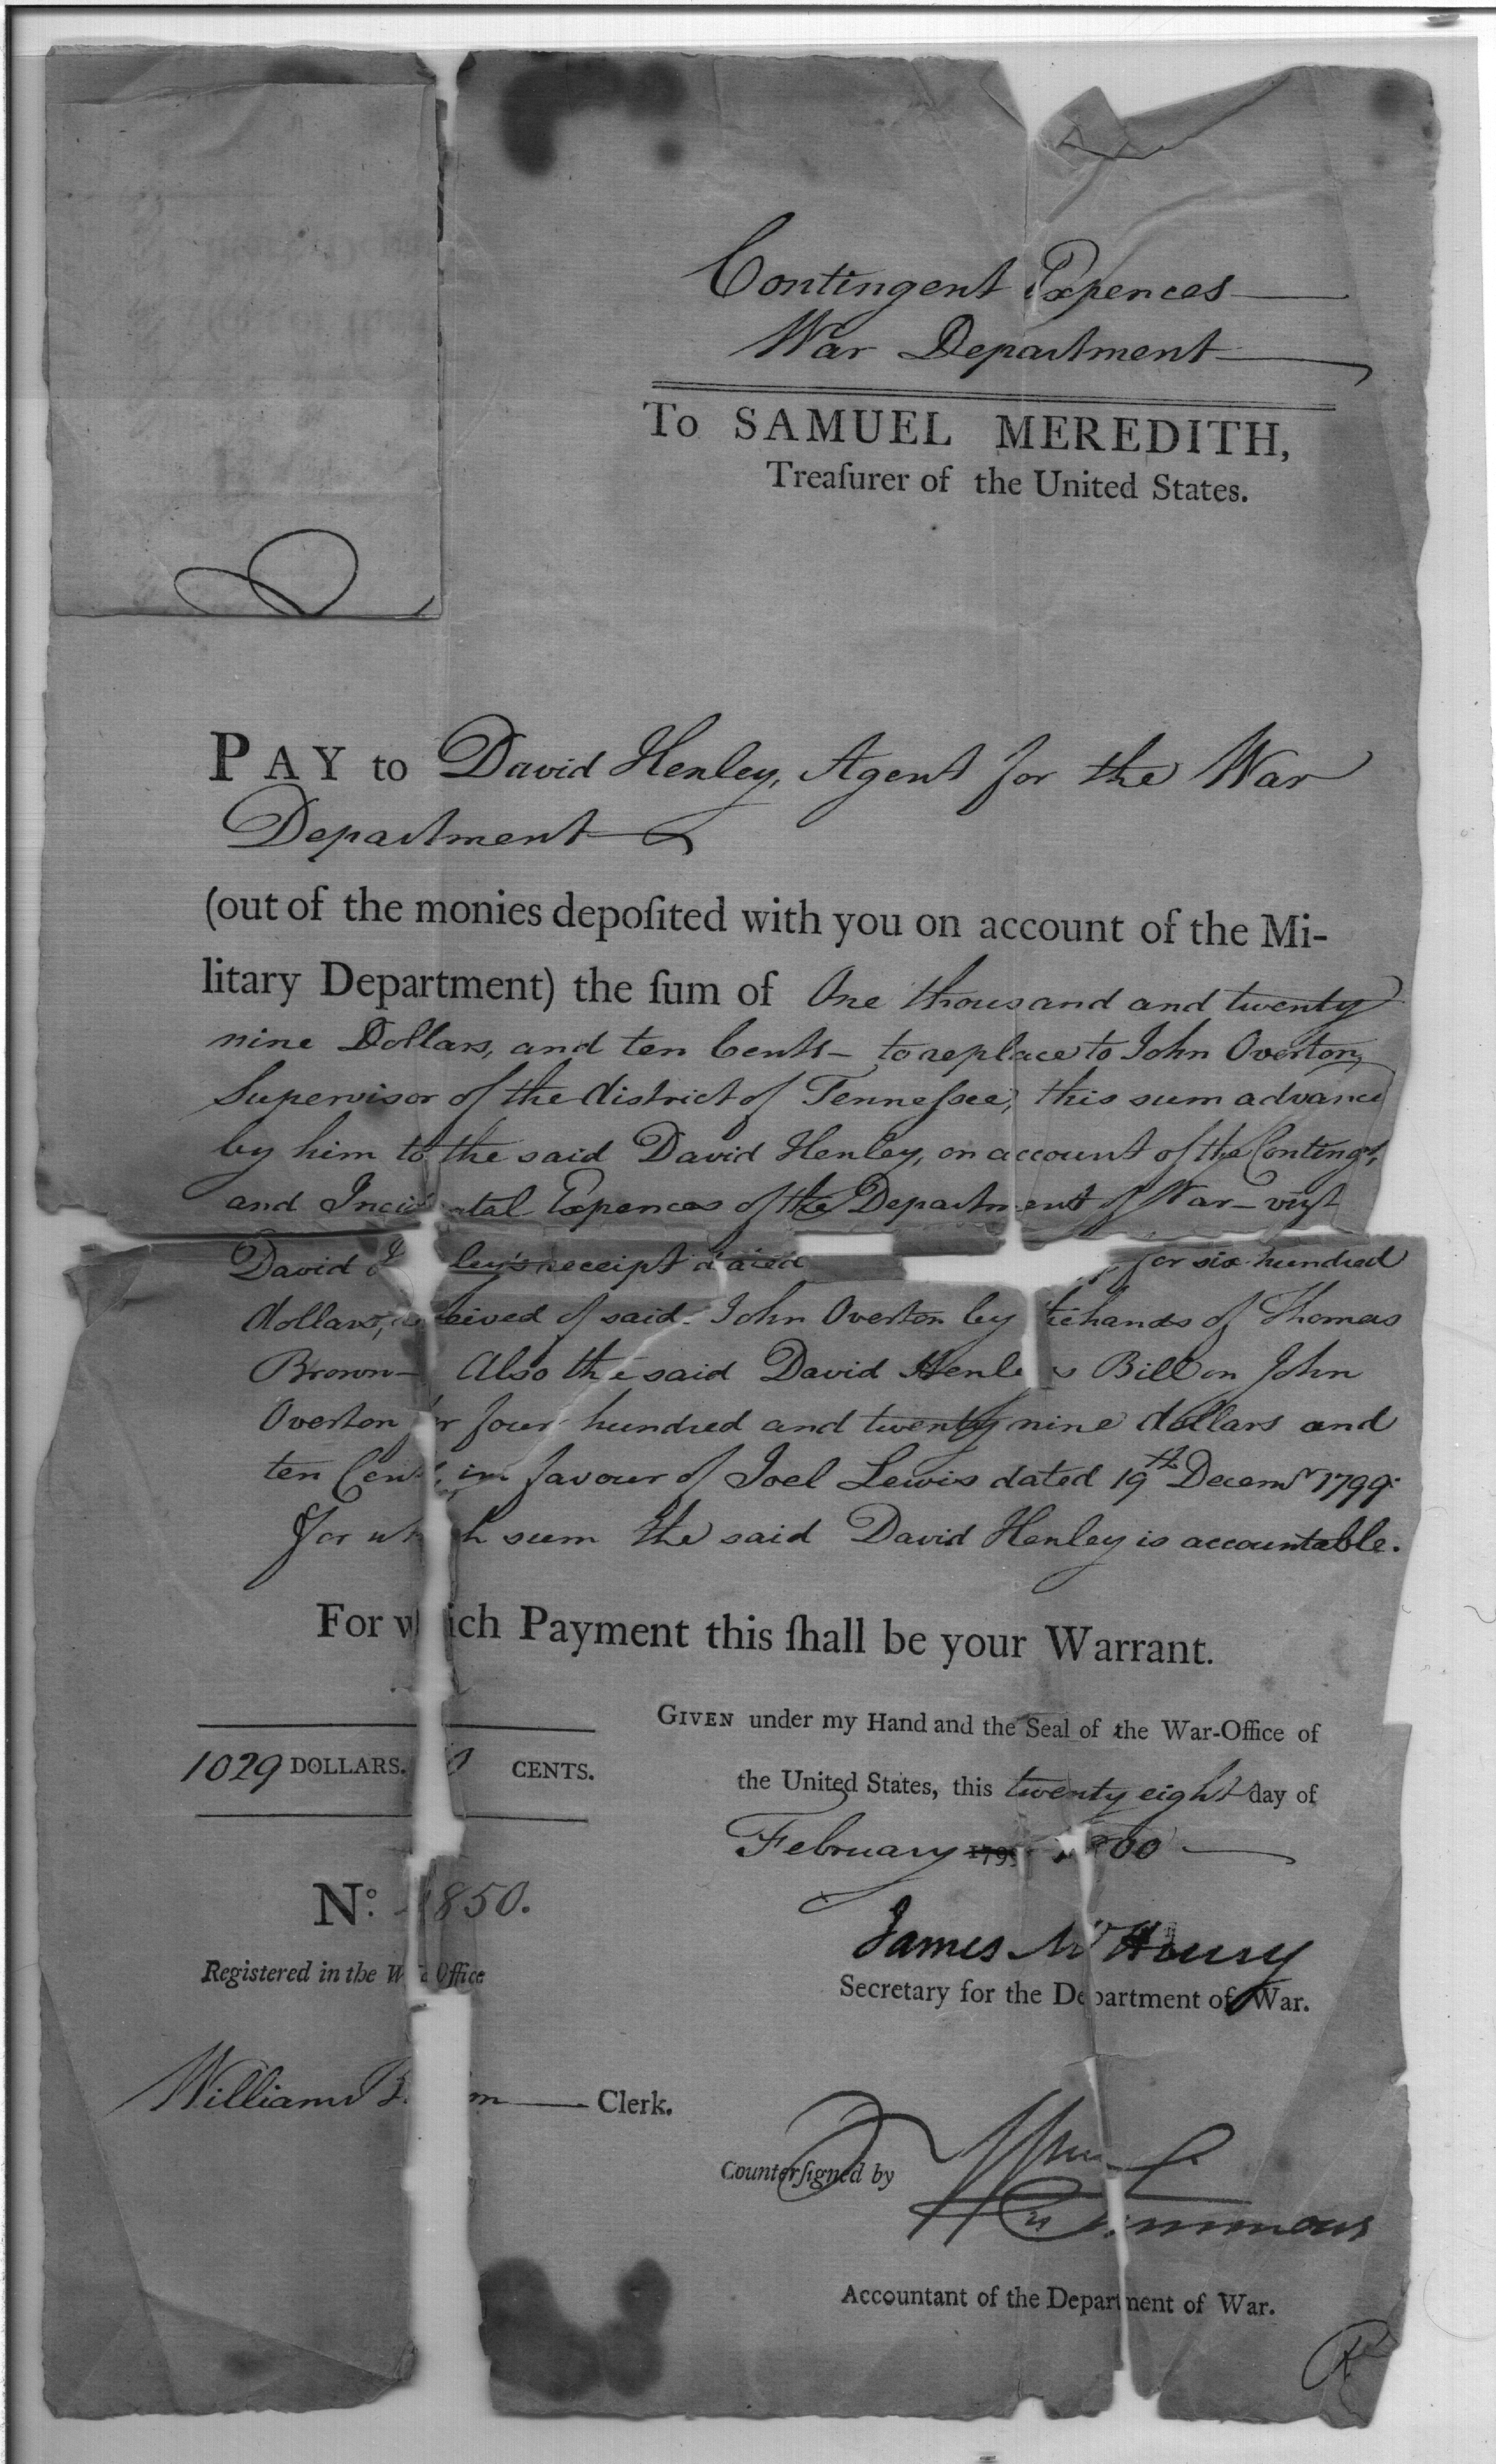 Contingent Expences
War Department
To SAMUEL MEREDITH,
Treaſurer of the United States.
PAY to David Henley, Agent for the War
Department
(out of the monies depoſited with you on account of the Mi-
litary Department) the ſum of One thousand and twenty
nine Dollars, and ten Cents - to replace to John Overton,
Supervisor of the district of Tenneſsee, this sum advanced
by him to the said David Henley, on account of the Contingt.
and Inci ntal Expences of the Department of War -
David ley's receipt dated for six hundred
dollars, ceived of said John Overton by the hands of Thomas
Brown - Also the said David Henle s Bill on John
Overton r four hundred and twenty nine dollars and
ten Cents, in favour of Joel Lewis dated 19th Decemr 1799.
For wh h sum the said David Henley is accountable.
For which Payment this ſhall be your Warrant.
GIVEN under my Hand and the Seal of the War-Office of
the United States, this twenty eight day of
February 179 00
1029 DOLLARS. 0 CENTS.
No: 850.
Registered in the W Office
James McHenry
Secretary for the Department of War.
William m Clerk.
Counterſigned by
Wm Simmons
Accountant of the Department of War.